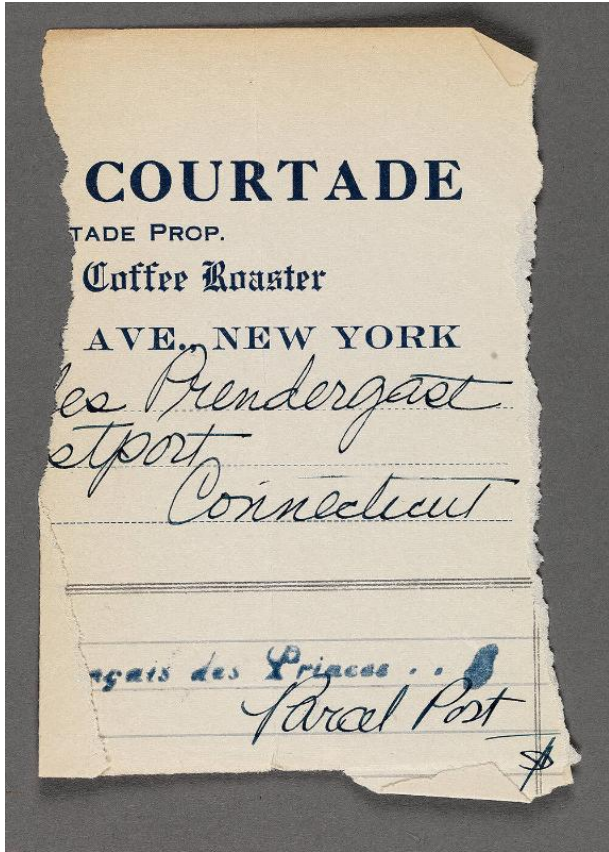 COURTADE
TADE PROP.
Coffee Roaster
AVE., NEW YORK
les Prendergast
stport
Connecticut
nçais des Princes . .
Parcel Post
$